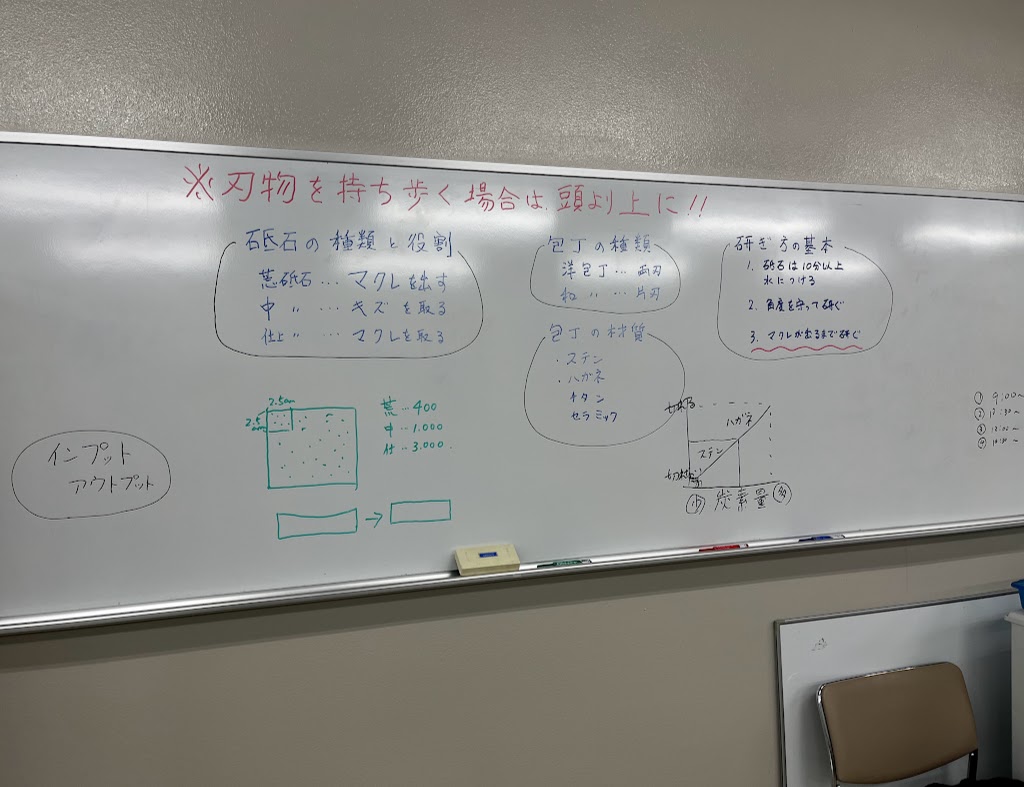 ※刃物を持ち歩く場合は、頭より上に!!
砥石の種類と役割
荒砥石…マクレを出す
中 〃 …キズを取る
仕上 〃 …マクレを取る
包丁の種類
洋包丁…両刃
和 〃 …片刃
包丁の材質
・ステン
・ハガネ
チタン
セラミック
研ぎ方の基本
1. 砥石は10分以上
水につける
2. 角度を守って研ぐ
3. マクレが出るまで研ぐ
インプット
アウトプット
2.5cm
2.5
cm
荒…400
中…1.000
仕…3.000
ハガネ
ステン
少 炭素量 多
① 9:00〜
②
③
④